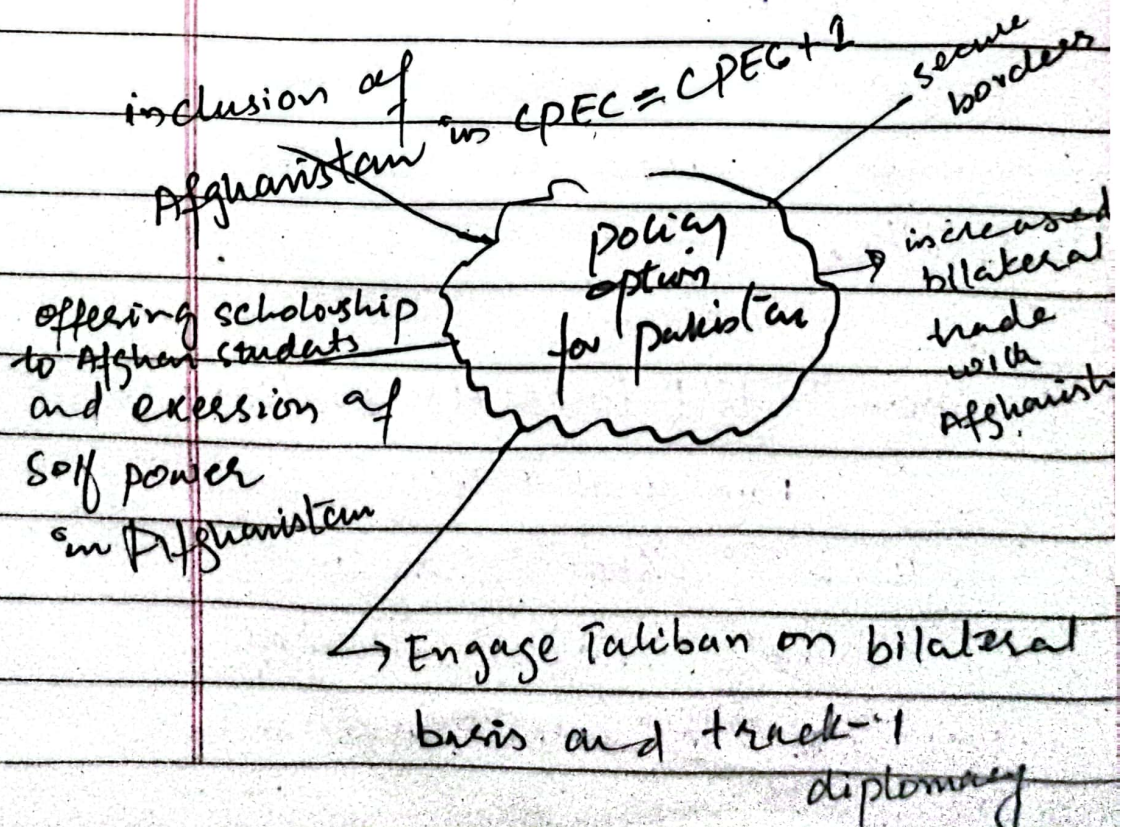 inclusion of
Afghanistan in CPEC = CPEC+1
secure
borders
policy
option
for Pakistan
increased
bilateral
trade
with
Afghanist
offering scholarship
to Afghan students
and exersion of
soft power
in Afghanistan
Engage Taliban on bilateral
basis and track-1
diplomacy